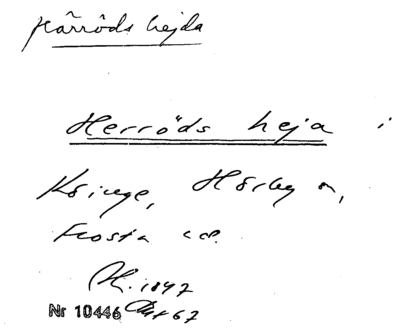 Härröds hejda
Herröds heja i
Köinge, Hörby sn,
Frosta hd.
1847
Nr 10446